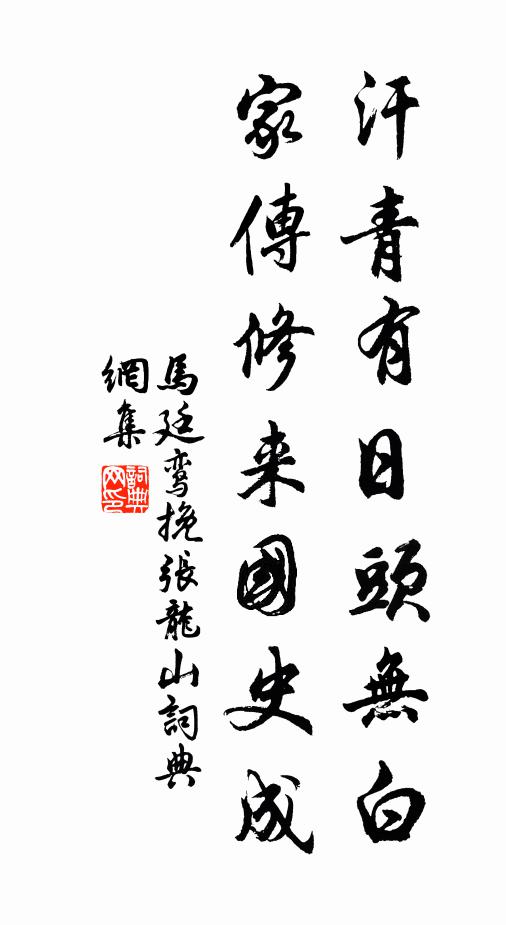 汗青有日頭無白
家傳修来國史成
馬廷鸾挽張龍山詞典
網集
詞典
网印